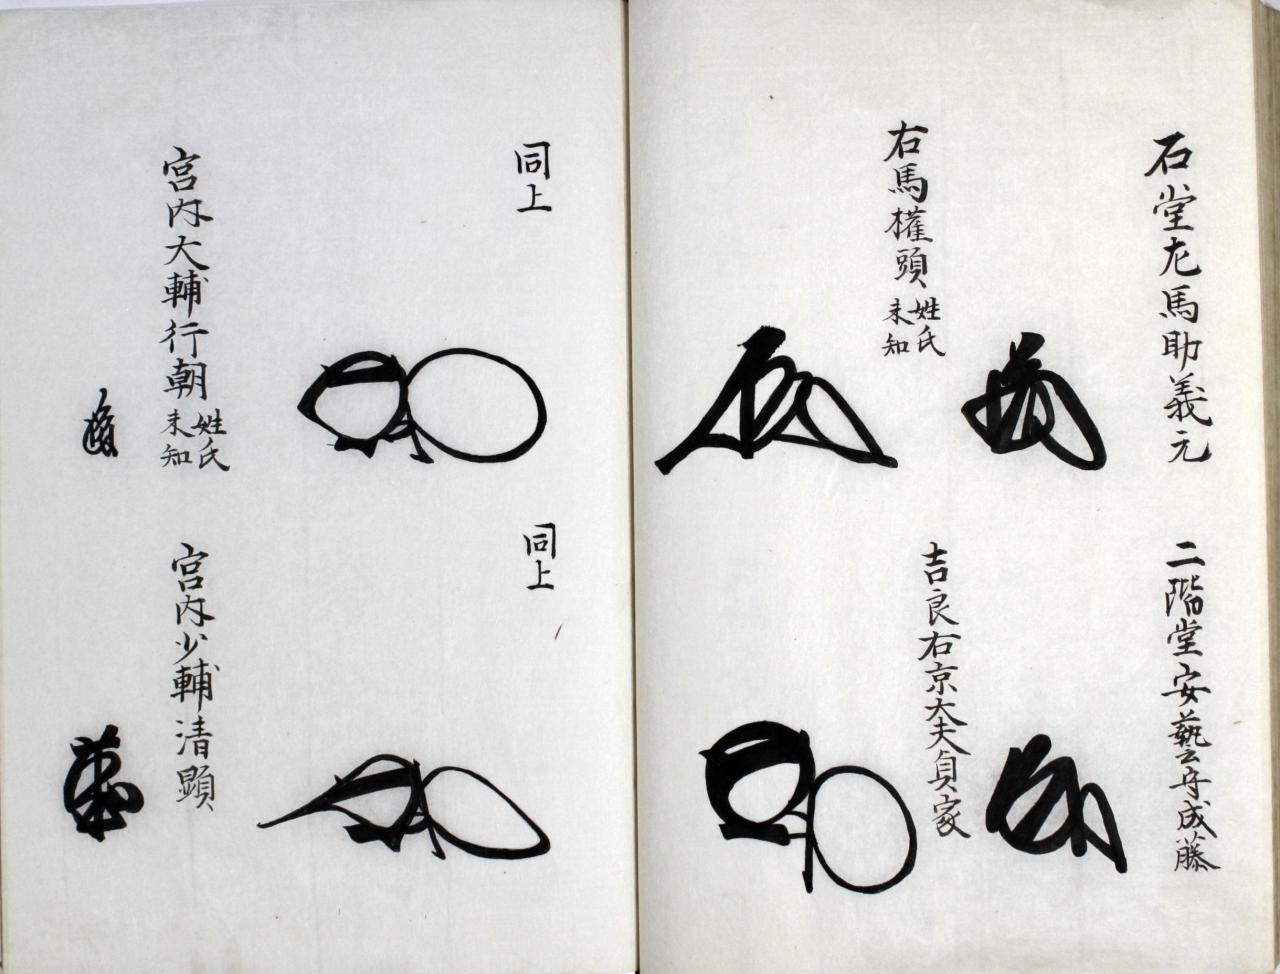 石堂左馬助義元
二階堂安藝守成藤
右馬權頭 姓氏未知
吉良右京大夫貞家
同上
同上
宮内大輔行朝 姓氏未知
宮内少輔清顕